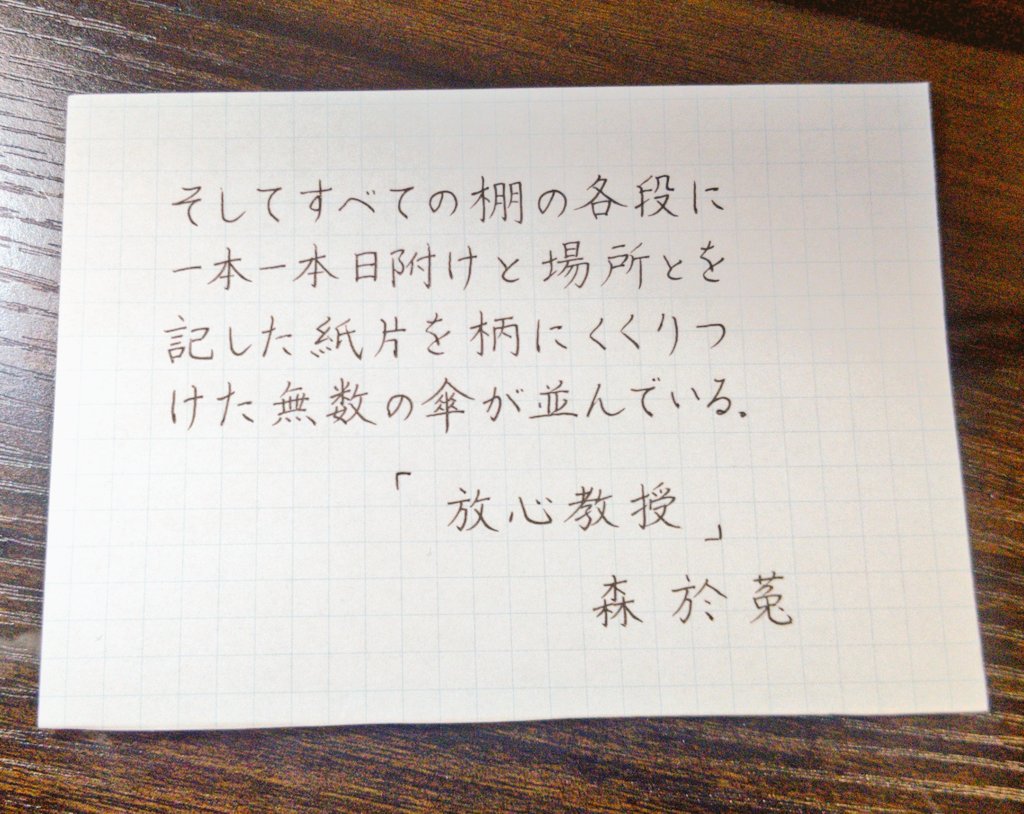 そしてすべての棚の各段に
一本一本日附けと場所とを
記した紙片を柄にくくりつ
けた無数の傘が並んでいる.
「放心教授」
森於菟